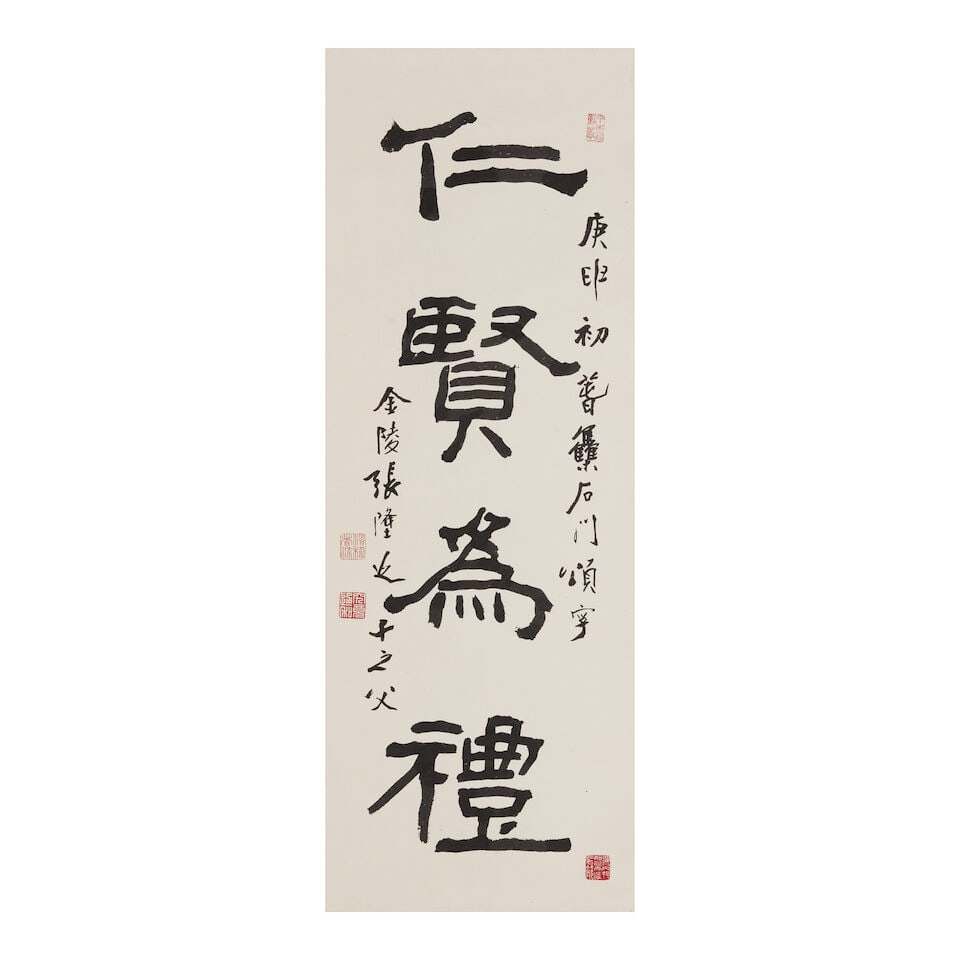 庚申初萅雧石門頌字
仁賢為禮
金陵張隆延十之父